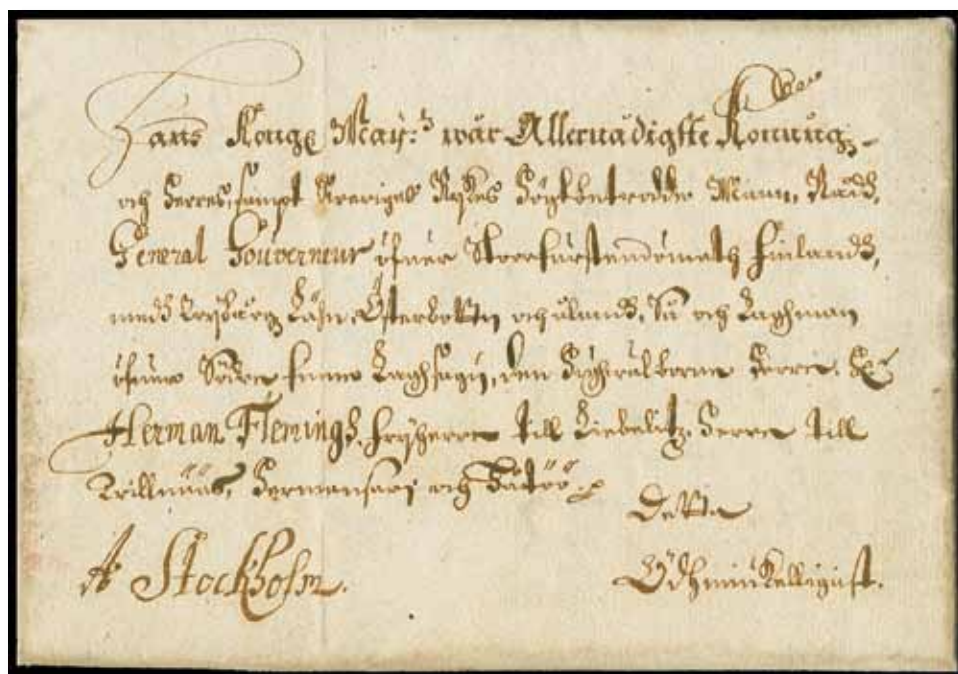 Hans Kongl May:tz wår Allernådigste Konungz
och Herres, sampt Sweriges Rijkes Högtbetrodde Mann, Rådh,
General Gouverneur öfwer Storfurstendömeth Finlandh,
medh Län, Österbotn och Ålandh, Så och Laghman
öfwer Södre finne Laghsagu, den Högwälborne Herre, H
Herman Flemingh, frijherre till Liebelitz, Herre till
Willnääs, Hermansari och
Detta
Ödhmiukelligast.
A Stockholm.